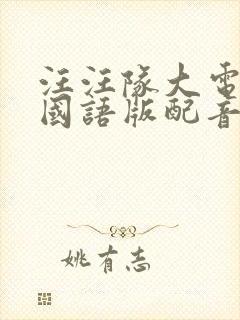 汪汪隊大電
國語版配音
姚有志